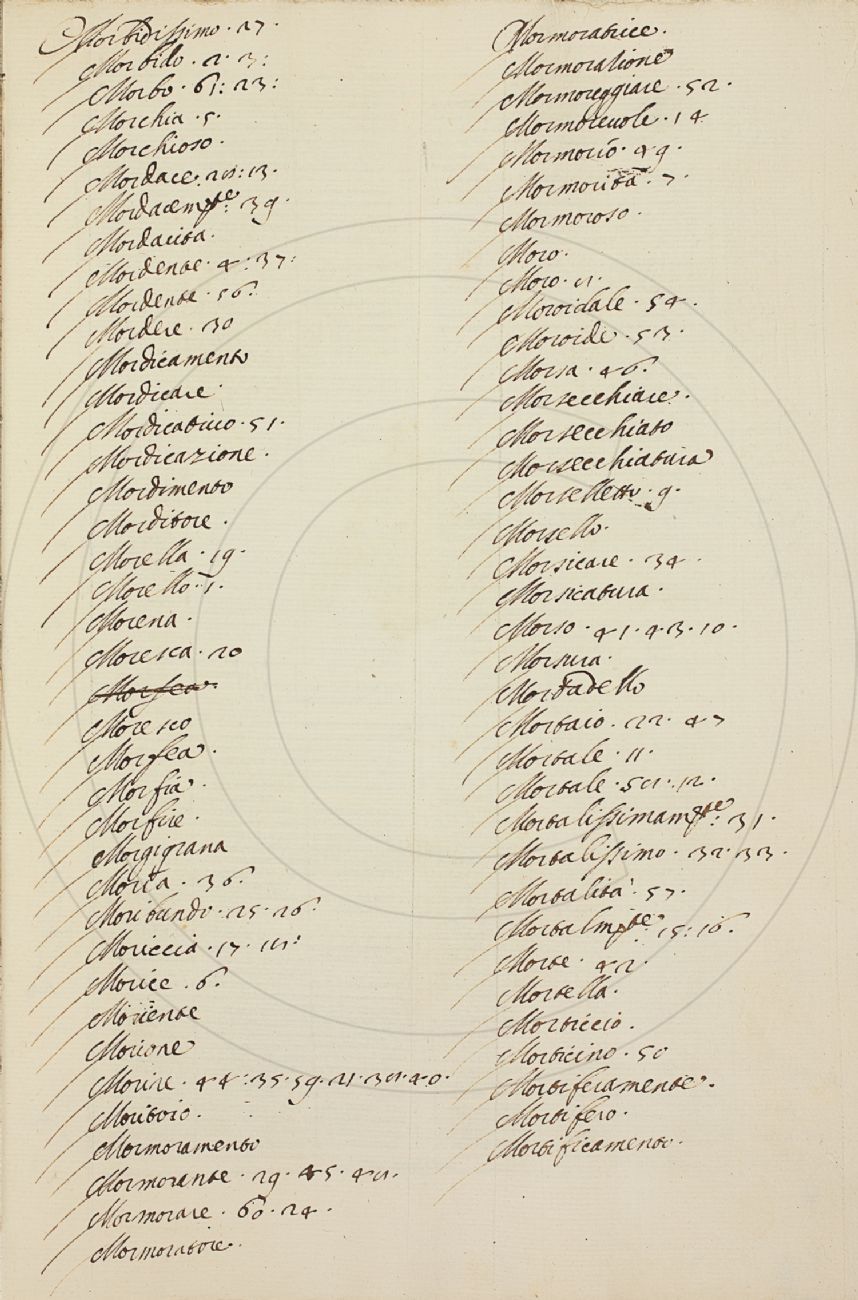 Morbidissimo . 27 .
Morbido . 2 . 3 :
Morbo . 61 : 23 :
Morchia . 5 .
Morchioso .
Mordace . 28 : 13 .
Mordacemte : 39 .
Mordacita .
Mordente . 4 : 37 :
Mordente . 56 .
Mordere . 30
Mordicamento
Mordicare
Mordicativo . 51 .
Mordicazione .
Mordimento
Morditore .
Morella . 19 .
Morello . 1 .
Morena .
Moresca . 20
Moresco
Morfea .
Morfia .
Morfire .
Morgigrana
Moria . 36 .
Moribundo . 25 . 26 .
Moriccia . 17 . 18 :
Morice . 6 .
Moriente
Morione
Morire . 44 : 35 . 59 . 21 . 38 . 40 .
Moritoio .
Mormoramento
Mormorante . 29 . 45 . 48 .
Mormorare . 60 . 24 .
Mormoratore .
Mormoratrice .
Mormoratione
Mormoreggiare . 52 .
Mormorevole . 14
Mormorio . 49 .
Mormorità . 7 .
Mormoroso .
Moro .
Moro . 8 .
Moroidale . 54 .
Moroide . 53 .
Morsa . 46 .
Morsecchiare .
Morsecchiato
Morsecchiatura
Morselletto . 9 .
Morsello .
Morsicare . 34 .
Morsicatura .
Morso . 41 . 43 . 10 .
Morsura .
Mortadello
Mortaio . 22 . 47
Mortale . 11 .
Mortale . 58 . 12 .
Mortalissimamte : 31 .
Mortalissimo . 32 . 33 .
Mortalità . 57 .
Mortalmte : 15 : 16 .
Morte . 42 .
Mortella .
Morticcio .
Morticino . 50
Mortiferamente .
Mortifero .
Mortificamento .